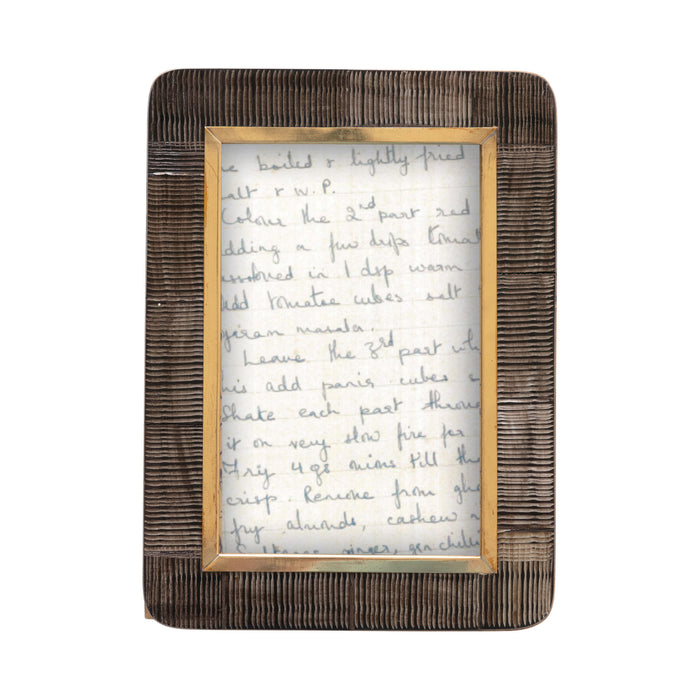 e boiled & lightly fried
alt & W.P.
Colour the 2nd part red
dding a few drops tomat
ssolved in 1 dsp warm
Add tomatoe cubes salt
garam masala.
Leave the 3rd part wh
his add panir cubes
Shake each part throu
it on very slow fire for
Fry 4 gs onions till the
crisp. Remove from ghe
fry almonds, cashew
ginger, gcn chilli